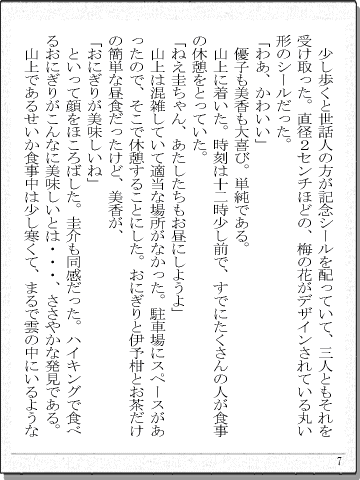 少し歩くと世話人の方が記念シールを配っていて、三人ともそれを
受け取った。直径２センチほどの、梅の花がデザインされている丸い
形のシールだった。
「わあ、かわいい」
　優子も美香も大喜び。単純である。
　山上に着いた。時刻は十二時少し前で、すでにたくさんの人が食事
の休憩をとっていた。
「ねえ圭ちゃん、あたしたちもお昼にしようよ」
　山上は混雑していて適当な場所がなかった。駐車場にスペースがあ
ったので、そこで休憩することにした。おにぎりと伊予柑とお茶だけ
の簡単な昼食だったけど、美香が、
「おにぎりが美味しいね」
　といって顔をほころばした。圭介も同感だった。ハイキングで食べ
るおにぎりがこんなに美味しいとは・・・、ささやかな発見である。
　山上であるせいか食事中は少し寒くて、まるで雲の中にいるような
7